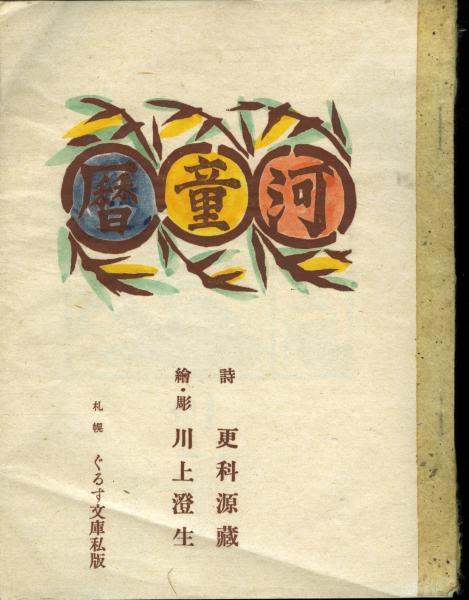 河童暦
詩　更科源藏
繪・彫　川上澄生
札幌　ぐるす文庫私版